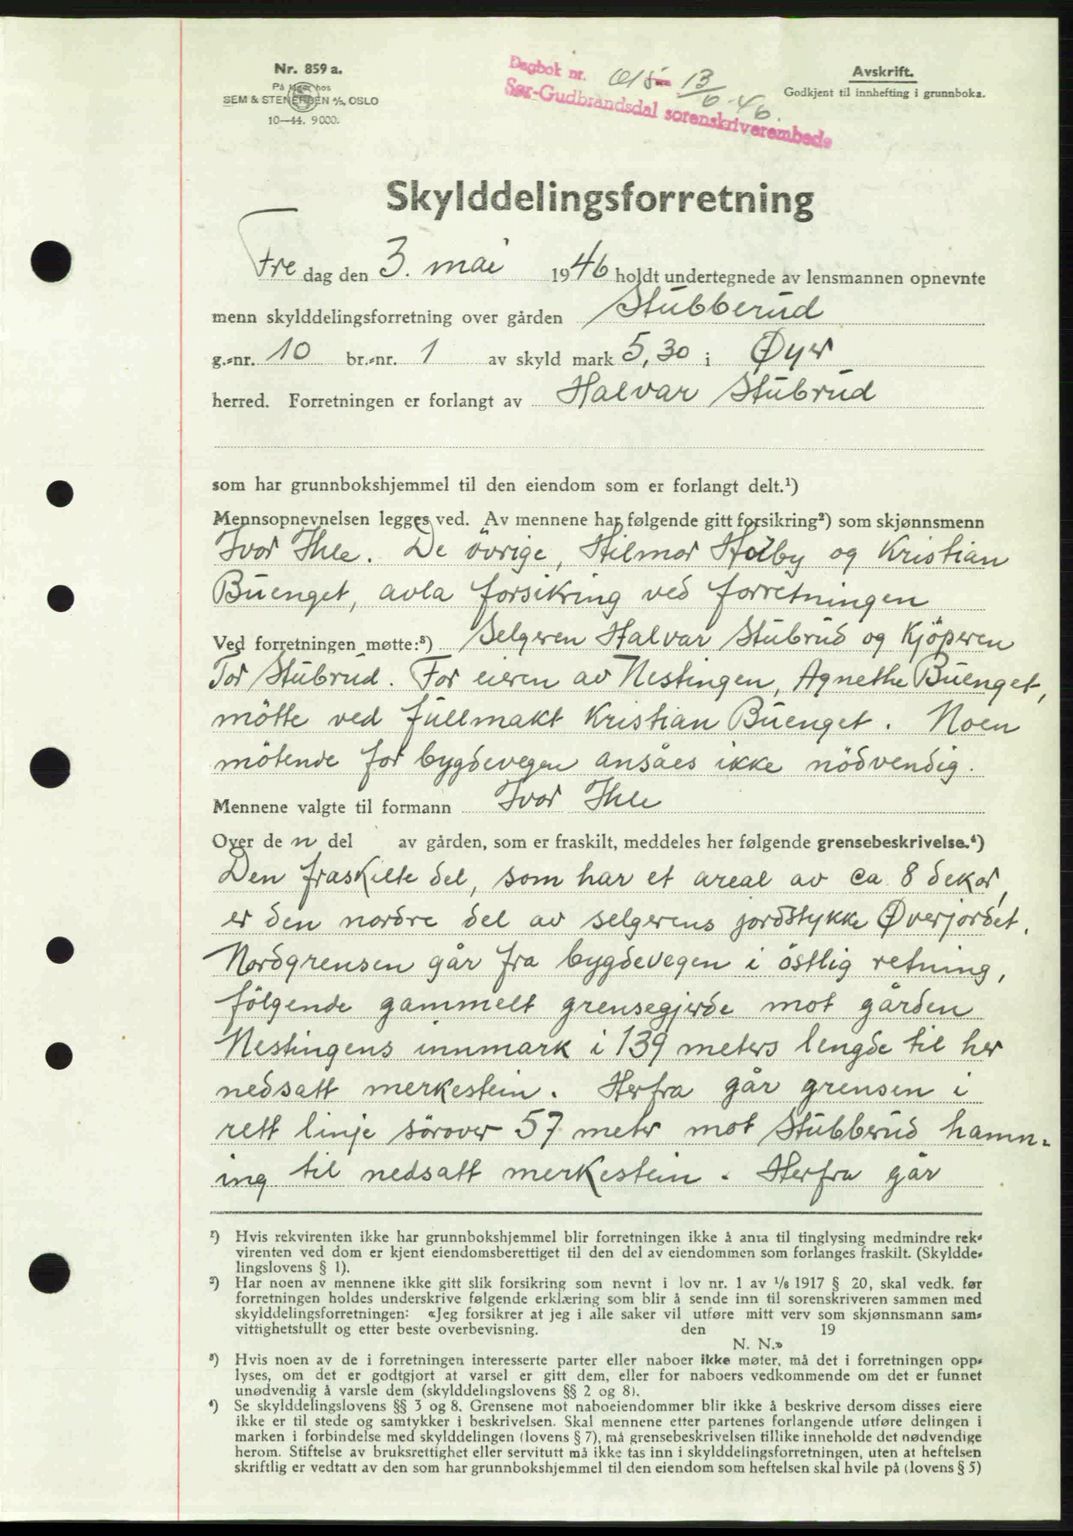 Nr. 859 a.
På lager hos
SEM & STENERSEN A/S, OSLO
10—44. 9000.
Dagbok nr. 615 - 13/6-46.
Sør-Gudbrandsdal sorenskriverembede
Avskrift.
Godkjent til innhefting i grunnboka.
Skylddelingsforretning
Fre dag den 3. mai 1946 holdt undertegnede av lensmannen opnevnte
menn skylddelingsforretning over gården Stubberud
g.-nr. 10 br.-nr. 1 av skyld mark 5,30 i Øyer
herred. Forretningen er forlangt av Halvar Stubrud
som har grunnbokshjemmel til den eiendom som er forlangt delt.¹)
Mennsopnevnelsen legges ved. Av mennene har følgende gitt forsikring²) som skjønnsmenn
Ivor Ihle. De övrige, Hilmar Holby og Kristian
Buenget, avla forsikring ved forretningen
Ved forretningen møtte:³) Selgeren Halvar Stubrud og Kjöperen
Tor Stubrud. For eieren av Nestingen, Agnethe Buenget,
mötte ved fullmakt Kristian Buenget. Noen
mötende for bygdevegen ansåes ikke nödvendig.
Mennene valgte til formann Ivor Ihle
Over de n del av gården, som er fraskilt, meddeles her følgende grensebeskrivelse.⁴)
Den fraskilte del, som har et areal av ca 8 dekar,
er den nordre del av selgerens jordstykke Øverjordet.
Nordgrensen går fra bygdevegen i östlig retning,
fölgende gammelt grensegjerde mot gården
Nestingens innmark i 139 meters lengde til her
nedsatt merkestein. Herfra går grensen i
rett linje sörover 57 meter mot Stubberud hamn-
ing til nedsatt merkestein. Herfra går
¹) Hvis rekvirenten ikke har grunnbokshjemmel blir forretningen ikke å anta til tinglysing medmindre rek-
virenten ved dom er kjent eiendomsberettiget til den del av eiendommen som forlanges fraskilt. (Skyldde-
lingslovens § 1).
²) Har noen av mennene ikke gitt slik forsikring som nevnt i lov nr. 1 av 1/8 1917 § 20, skal vedk. før
forretningen holdes underskrive følgende erklæring som blir å sende inn til sorenskriveren sammen med
skylddelingsforretningen: «Jeg forsikrer at jeg i alle saker vil utføre mitt verv som skjønnsmann sam-
vittighetsfullt og etter beste overbevisning. den 19
N. N.»
³) Hvis noen av de i forretningen interesserte parter eller naboer ikke møter, må det i forretningen opp-
lyses, om det er godtgjort at varsel er gitt dem, eller for naboers vedkommende om det er funnet
unødvendig å varsle dem (skylddelingslovens §§ 2 og 8).
⁴) Se skylddelingslovens §§ 3 og 8. Grensene mot naboeiendommer blir ikke å beskrive dersom disses eiere
ikke er til stede og samtykker i beskrivelsen. Skal mennene etter partenes forlangende utføre delingen i
marken i forbindelse med skylddelingen (lovens § 7), må grensebeskrivelsen tillike inneholde det nødvendige
herom. Stiftelse av bruksrettighet eller servitutt må ikke tas inn i skylddelingsforretningen, uten at heftelsen
skriftlig er vedtatt av den som har grunnbokshjemmel til den eiendom som heftelsen skal hvile på (lovens § 5)